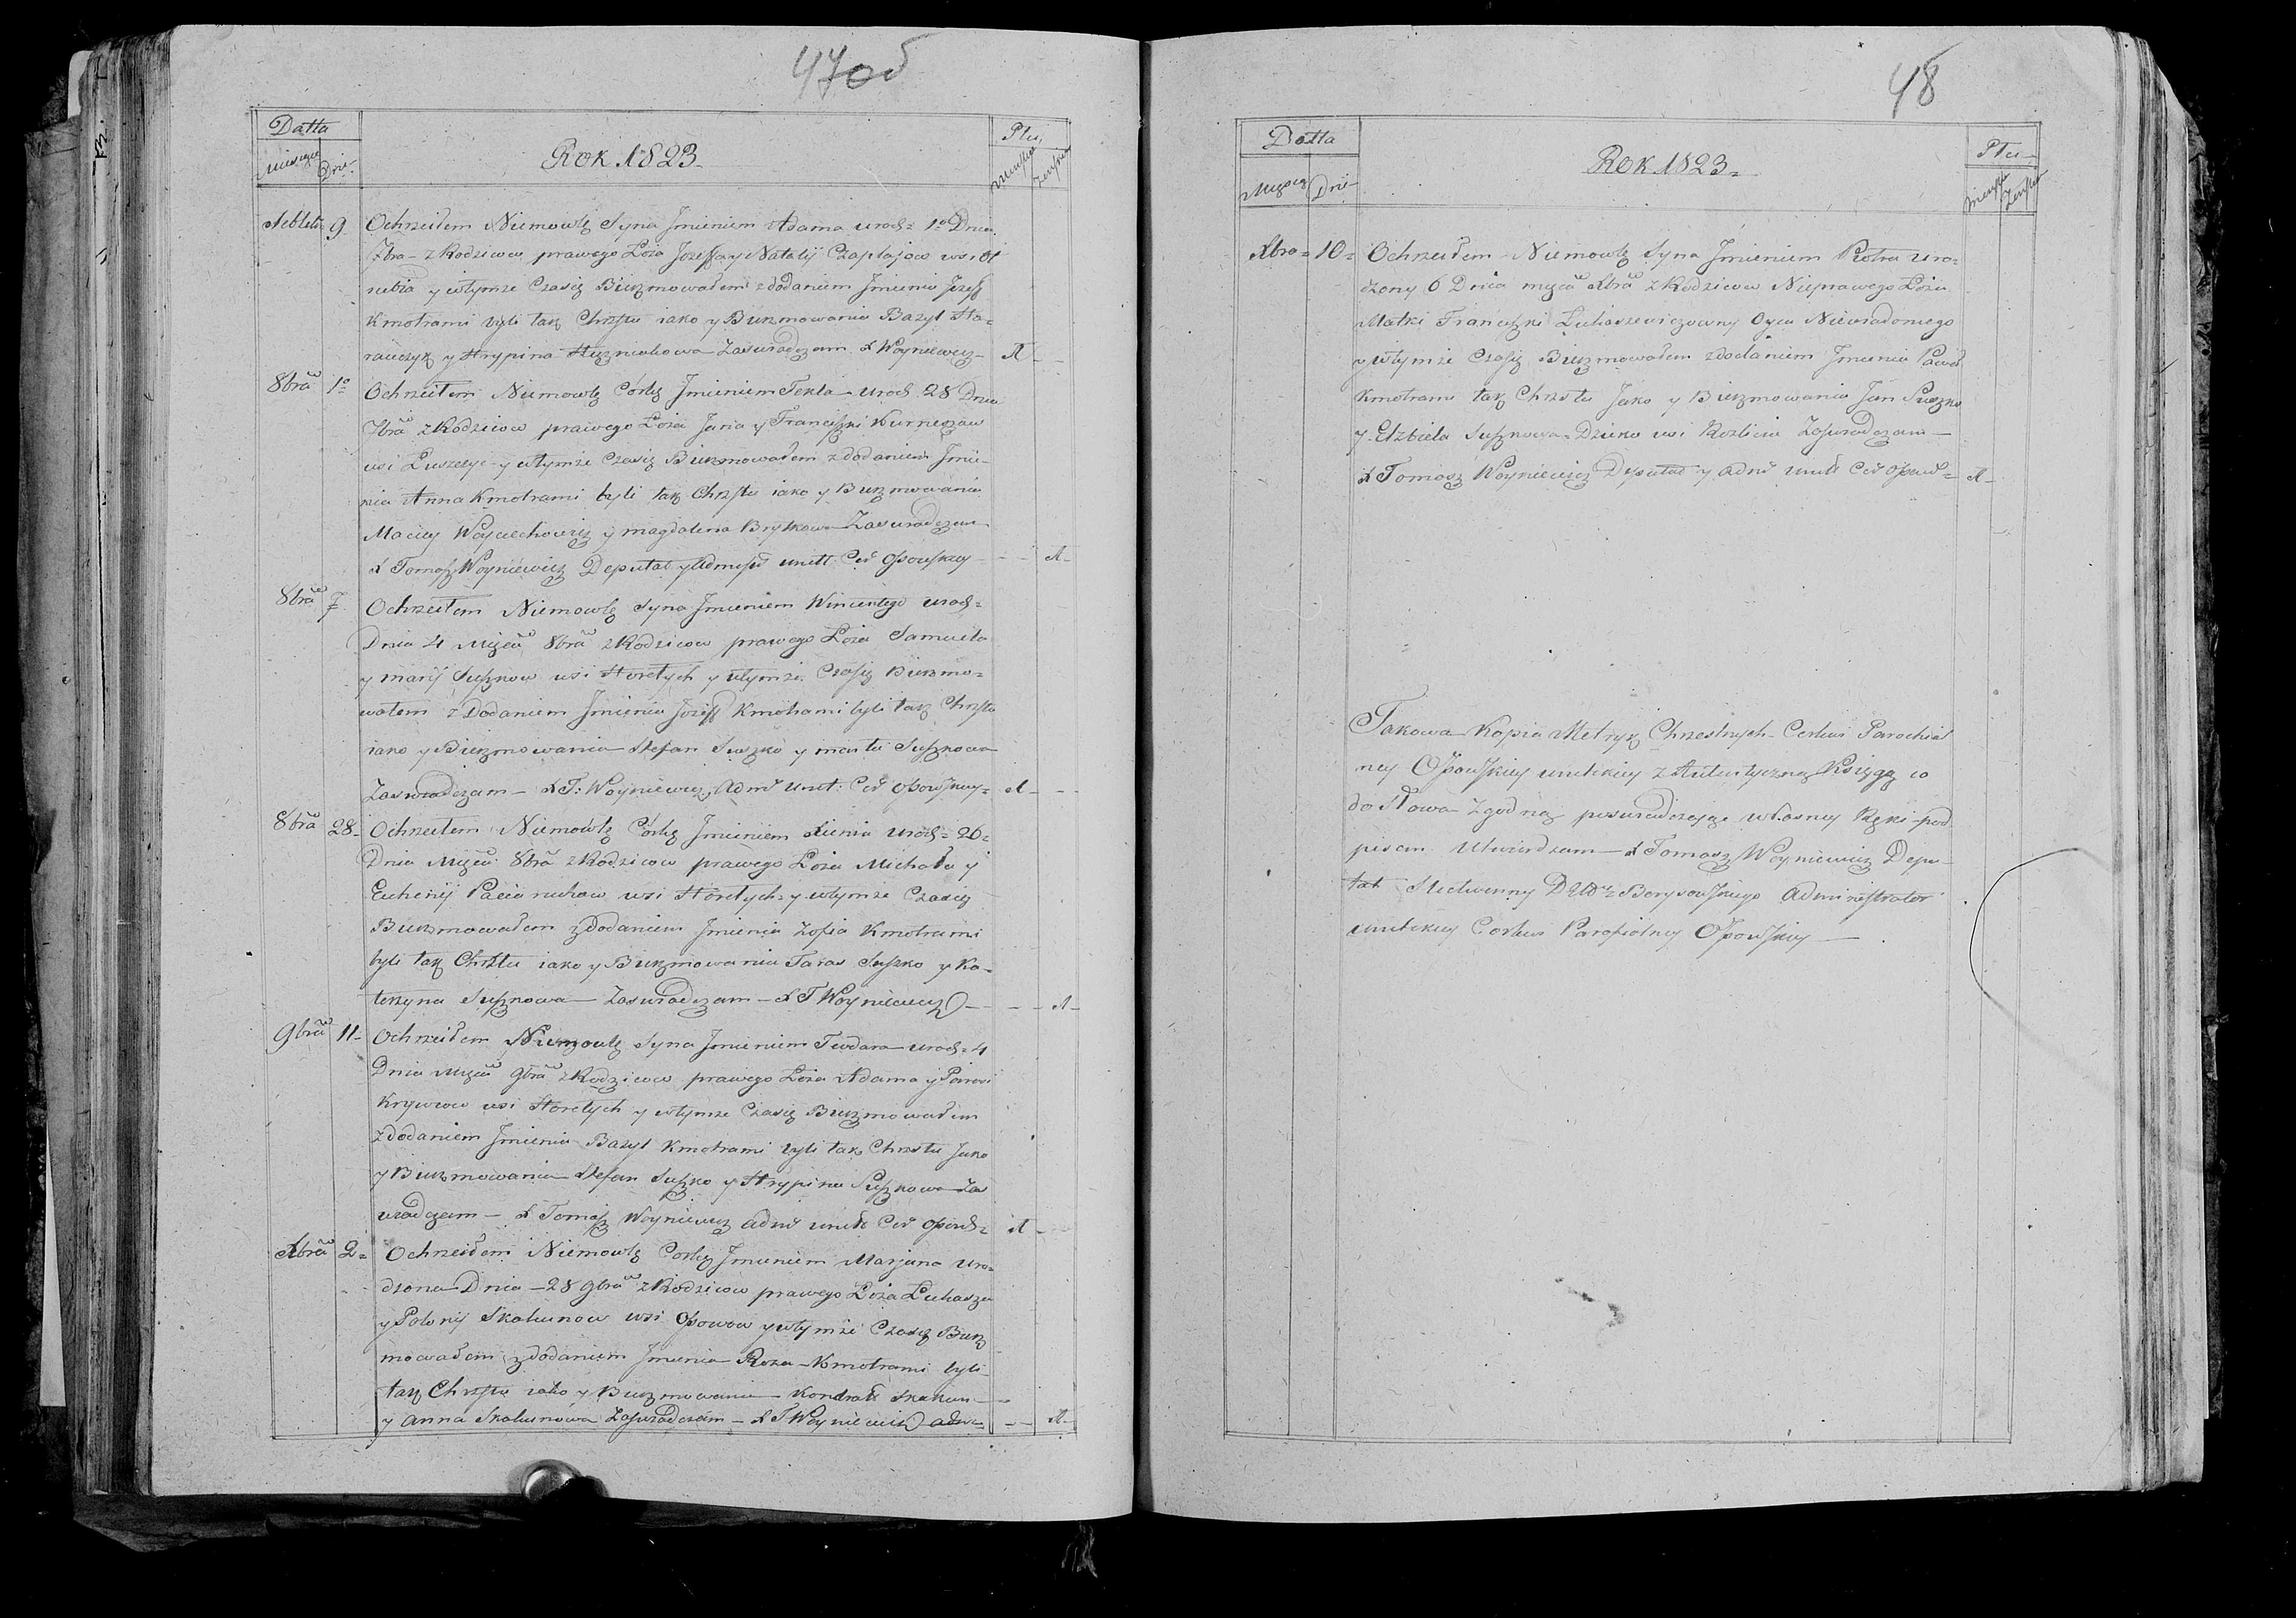 47об
Datta
Miesiące Dni
Rok 1823.
Płci
męska żeńska
9 Ochrzciłem Niemowlę Syna Jmieniem Adama urodz= 1o Dnia
7bra – z Rodzicow prawego Łoża Jozeffa y Natalij Czaplajow wsi
y wtymże Czasię Bierzmowałem z dodaniem Jmienia Jozeff
Kmotrami byli tak Chrztu iako y Bierzmowania Bazyl Ha=
rauczyk y Hrypina Zaswiadczam X Woyniewicz – A –
8bra 1o Ochrzciłem Niemowlę Córkę Jmieniem Tekla urodz 28 Dnia
7bra z Rodzicow prawego Łoża Jana y Franciszki
wsi y wtymże Czasię Bierzmowałem z dodaniem Jmie=
nia Anna Kmotrami byli tak Chrztu iako y Bierzmowania
Maciey Woyciechowicz y Magdalena Brytkowa Zaswiadczam
X Tomasz Woyniewicz Deputat y Admstr unitt Cer Osowskiey – – A –
8bra 7 Ochrzciłem Niemowlę Syna Jmieniem Wincentego urodz=
Dnia 4 Mięca 8bra z Rodzicow prawego Łoża Samuela
y Marij Suszkow wsi Horełych y wtymże Czasię Bierzmo=
wałem z Dodaniem Jmienia Jozeff Kmotrami byli tak Chrztu
iako y Bierzmowania Stefan Suszko y Marta Suszkowa
Zaswiadczam – X T: Woyniewicz Adm unit: Cer Osowskiey= A –
8bra 28 – Ochrzciłem Niemowlę Córkę Jmieniem Xienia urodz= 26=
Dnia Mięca 8bra z Rodzicow prawego Łoża Michała y
Euhenij Paciaruchow wsi Horełych y wtymże Czasię
Bierzmowałem z dodaniem Jmienia Zofia Kmotrami
byli tak Chrztu iako y Bierzmowania Taras Suszko y Ka=
teryna Suszkowa – Zaswiadczam – X T Woyniewicz – – – A –
9bra 11 – Ochrzciłem Niemowlę Syna Jmieniem Teodara urodz= 4
Dnia Mięca 9bra z Rodzicow prawego Łoża Adama y Parasi
Krywcow wsi Horełych y wtymże Czasię Bierzmowałem
z dodaniem Jmienia Bazyl Kmotrami byli tak Chrztu Jako
y Bierzmowania Stefan Suszko y Hrypina Suszkowa Zas
wiadczam – X Tomasz Woyniewicz adm unitt Cer Osows= A –
Xbra 2= Ochrzciłem Niemowlę Corkę Jmieniem Marjana uro=
dzona Dnia – 28 9bra z Rodzicow prawego Łoża Łukasza
y Polonij Skakunow wsi Osowow y wtymże Czasię Bierz
mowałem z dodaniem Jmienia Roza – Kmotrami byli
tak Chrztu iako y Bierzmowania Kondrat Skakun –
y Anna Skakunowa Zaswiadczam – X T Woyniewicz adm – – A –
48
Datta
Miesięcy Dni
Rok 1823.
Płci
męska żeńska
Xbra= 10= Ochrzciłem Niemowlę Syna Jmieniem Piotra uro=
dzony 6 Dnia mięca Xbra z Rodzicow Nieprawego Łoża
Matki Franciszki Łukaszewiczowny Oyca Niewiadomego
y wtymże Czasię Bierzmowałem z dodaniem Jmienia Paweł
Kmotrami tak Chrztu Jako y Bierzmowania Jan Suszko
y Elzbieta Suszkowa= Dzieko wsi Zaswiadczam –
X Tomasz Woyniewicz Deputat y adm unitt Cer Osows= A –
Takowa Kopia Metryk Chrzestnych Cerkwi Parochial
ney Osowskiey unitskiey z Autentyczną Xsięgą co
do słowa zgodną poswiadczając własney Ręki pod
pisem Utwierdzam – X Tomasz Woyniewicz Depu=
tat Sledtwenny Borysowskiego Administrator
unitskiey Cerkwi Parafialney Osowskiey –